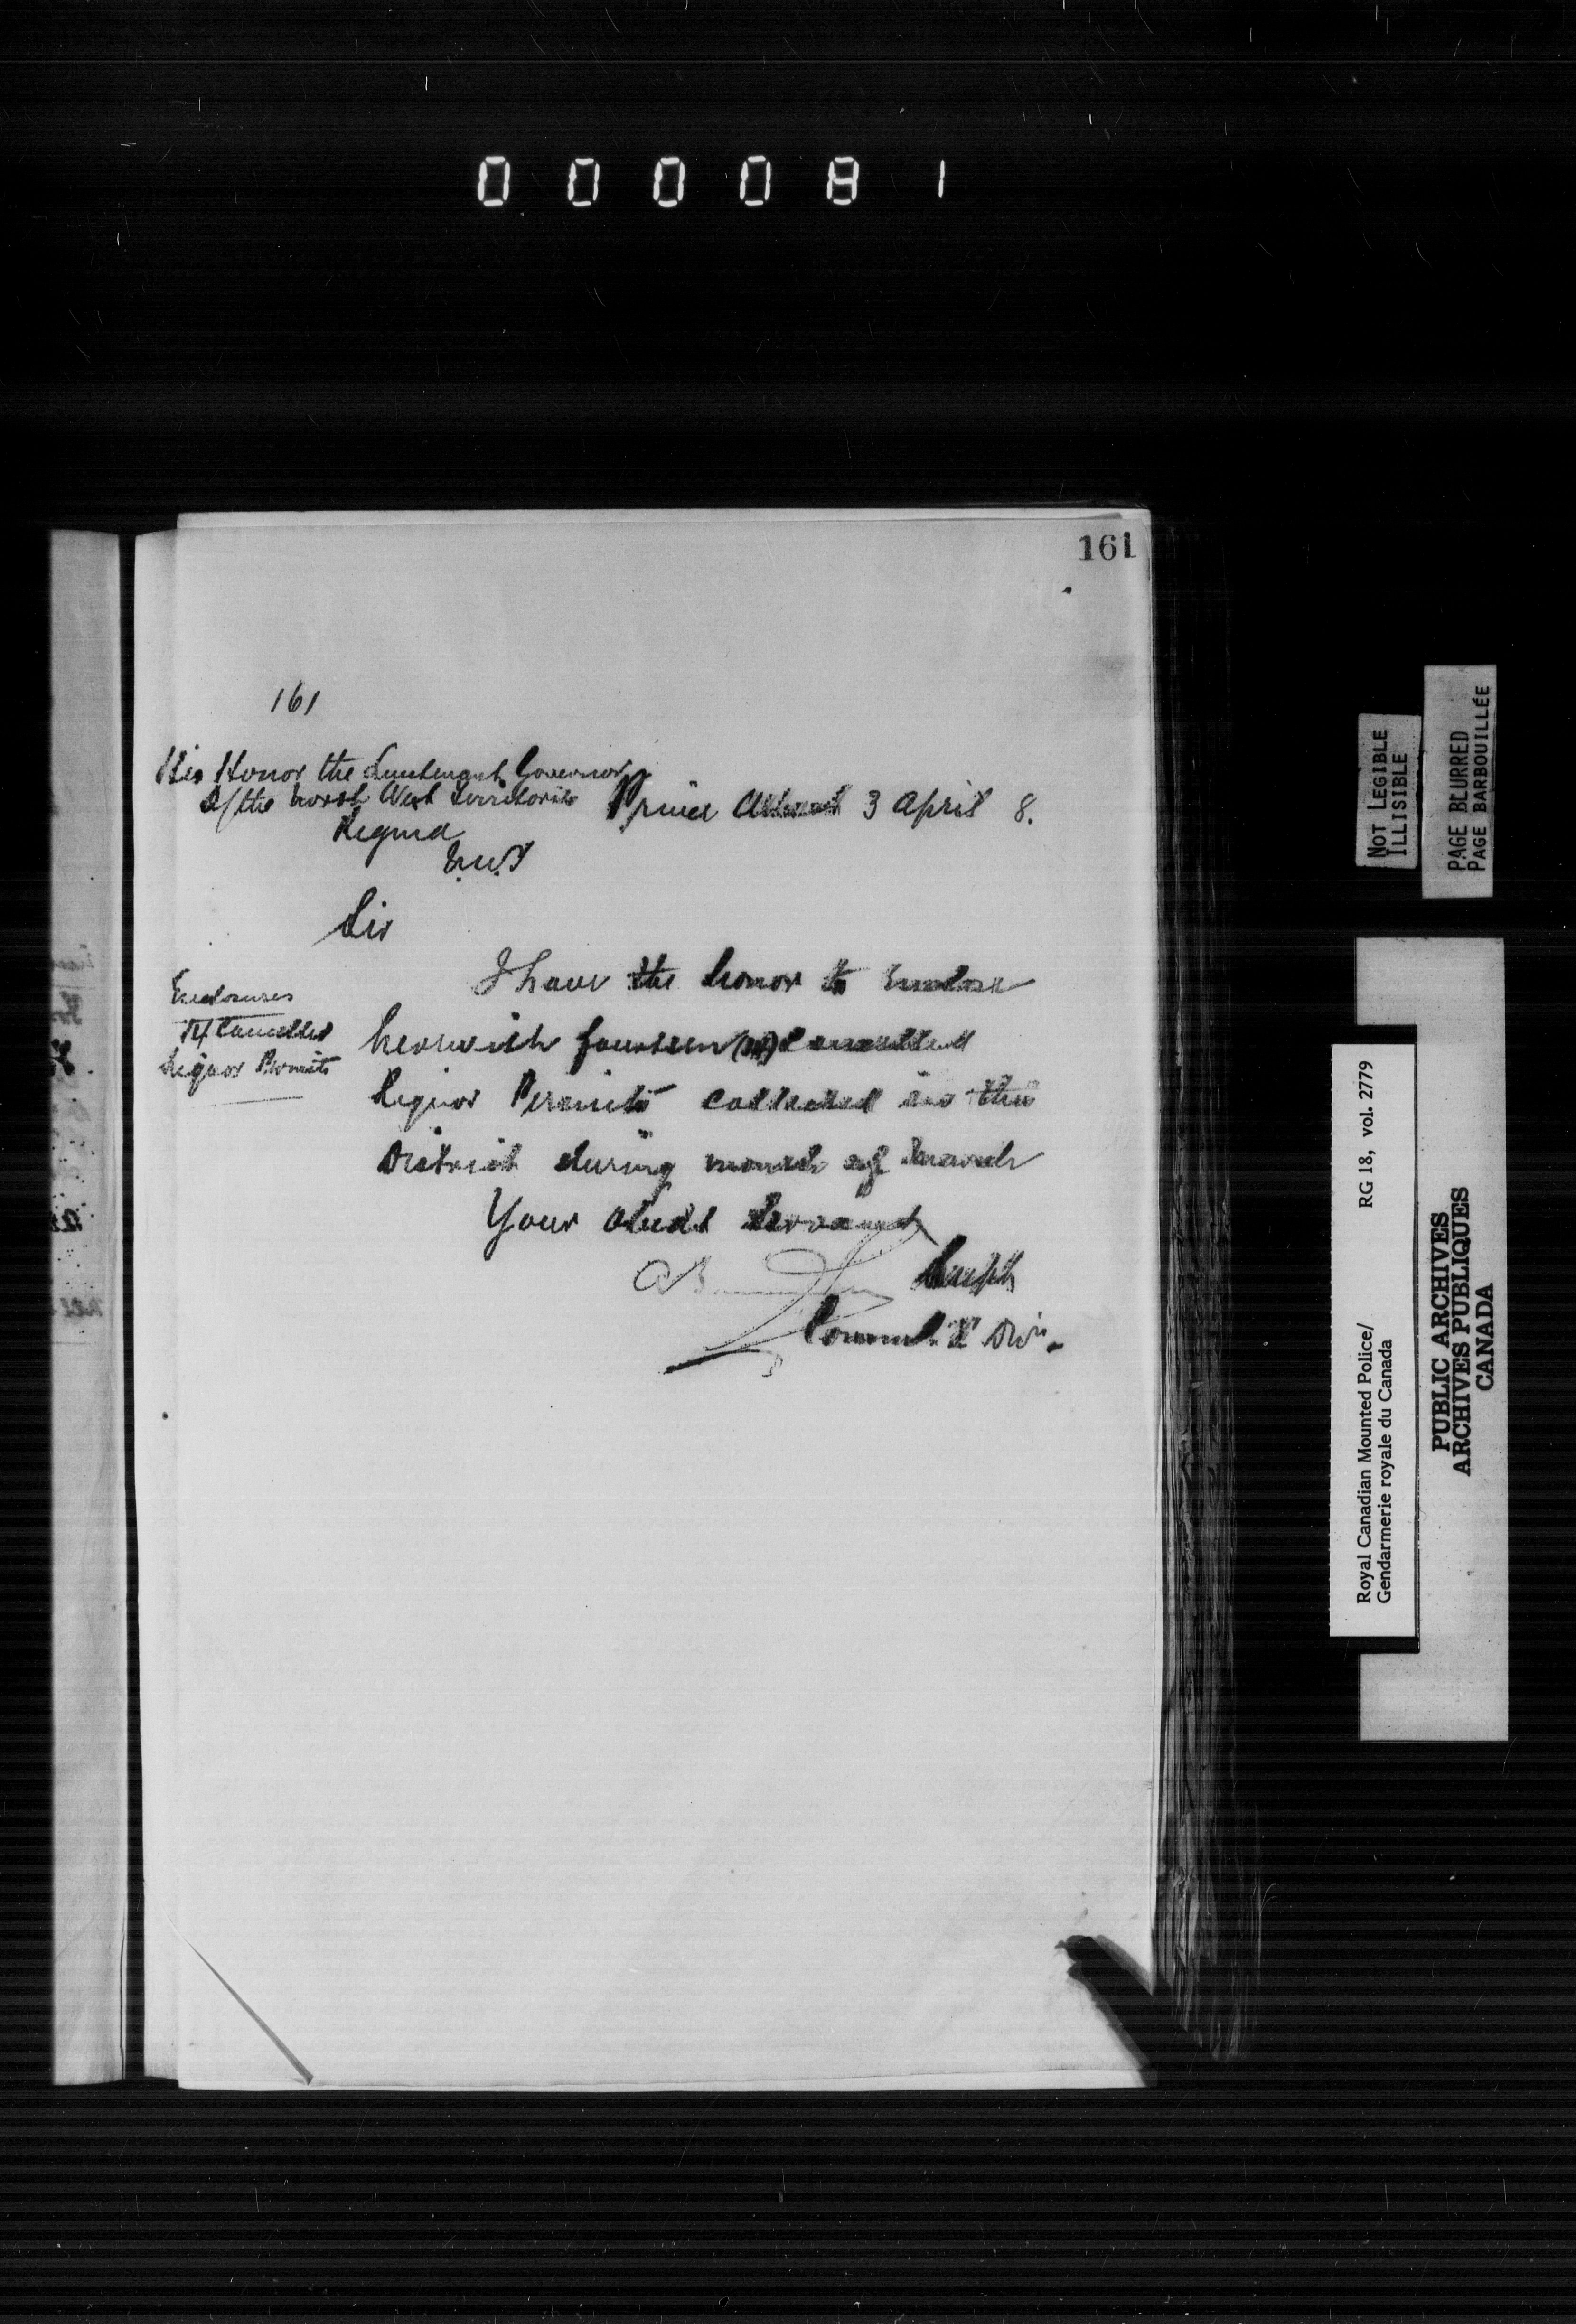 000081
161
161
His Honor the Lieutenant Governor
Of the North West Territories
Prince Albert 3 April 8.
Regina
N.W.T
Sir
I have the honor to enclose
Enclosures
14 Cancelled
Liquor Permits
herewith fourteen (14) cancelled
Liquor Permits collected in this
District during month of March
Your Obedt Servant
Supt
Command. Divn.
NOT LEGIBLE
ILLISIBLE
PAGE BLURRED
PAGE BARBOUILLÉE
Royal Canadian Mounted Police/ RG 18, vol. 2779
Gendarmerie royale du Canada
PUBLIC ARCHIVES
ARCHIVES PUBLIQUES
CANADA